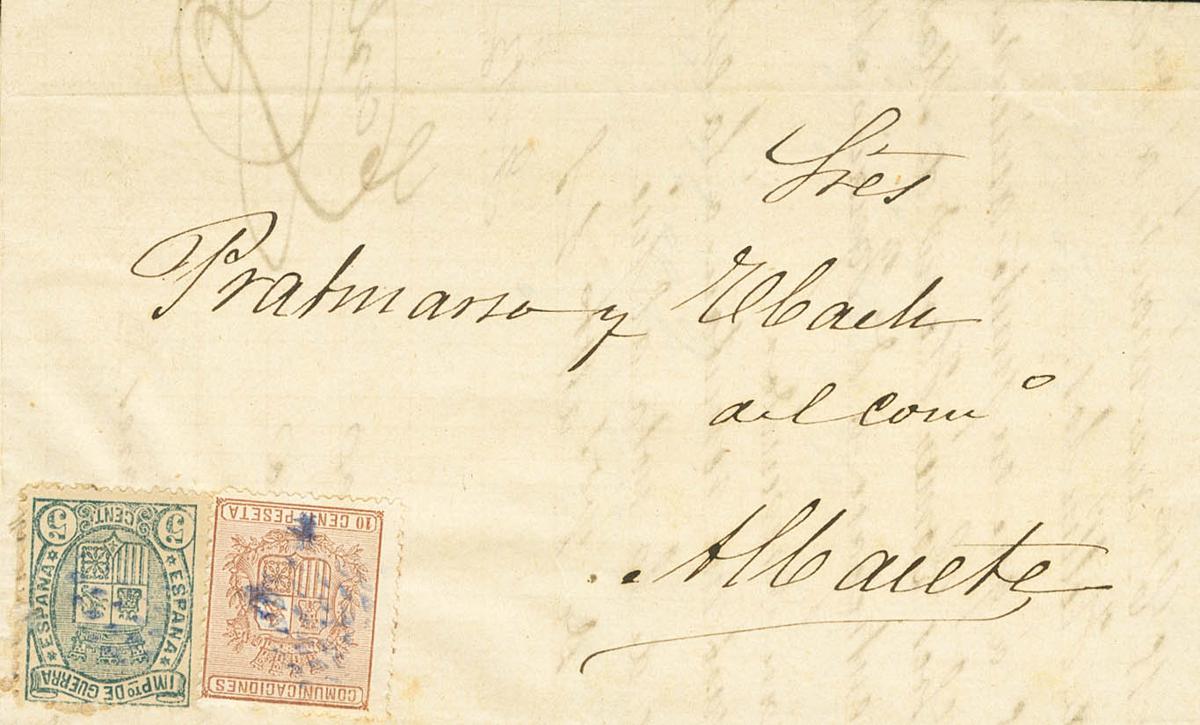 Sres
Pratmarso y Ebach
del comº
Albacete
5 CENT 5
ESPAÑA ESPAÑA
IMPto DE GUERRA
10 CENT. PESETA
COMUNICACIONES